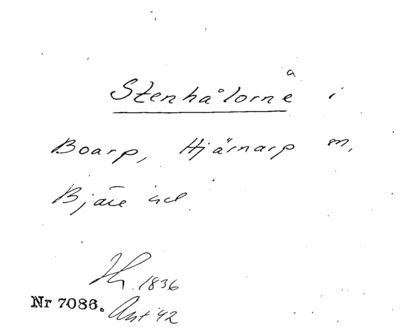 Stenhålorna i
Boarp, Hjärnarp m,
Bjäre hd.
1836
Nr 7086. Ant 42